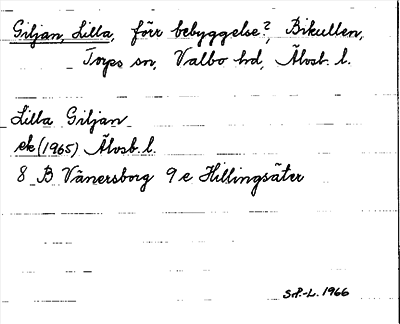 Giljan, Lilla, förr bebyggelse?, Bikullen,
Torps sn, Valbo hd, Älvsb. l.
Lilla Giljan
ek (1965) Älvsb. l.
8 B Vänersborg 9 e Hillingsäter
S.P.-L. 1966